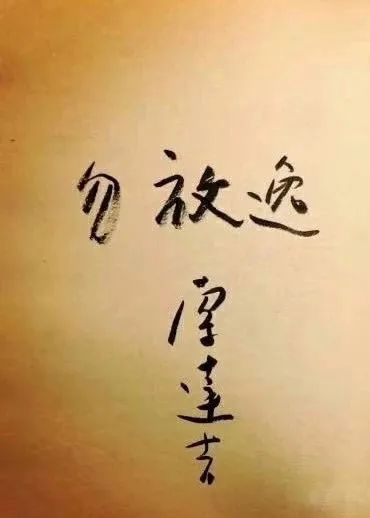 勿放逸
索達吉